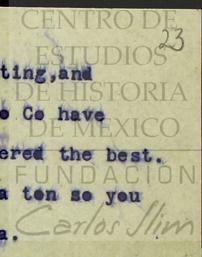 CENTRO DE
23
ESTUDIOS
ting, and
DE HISTORIA
o Co have
DE MEXICO
ered the best.
FUNDACIÓN
a ton so you
Carlos Slim
a.